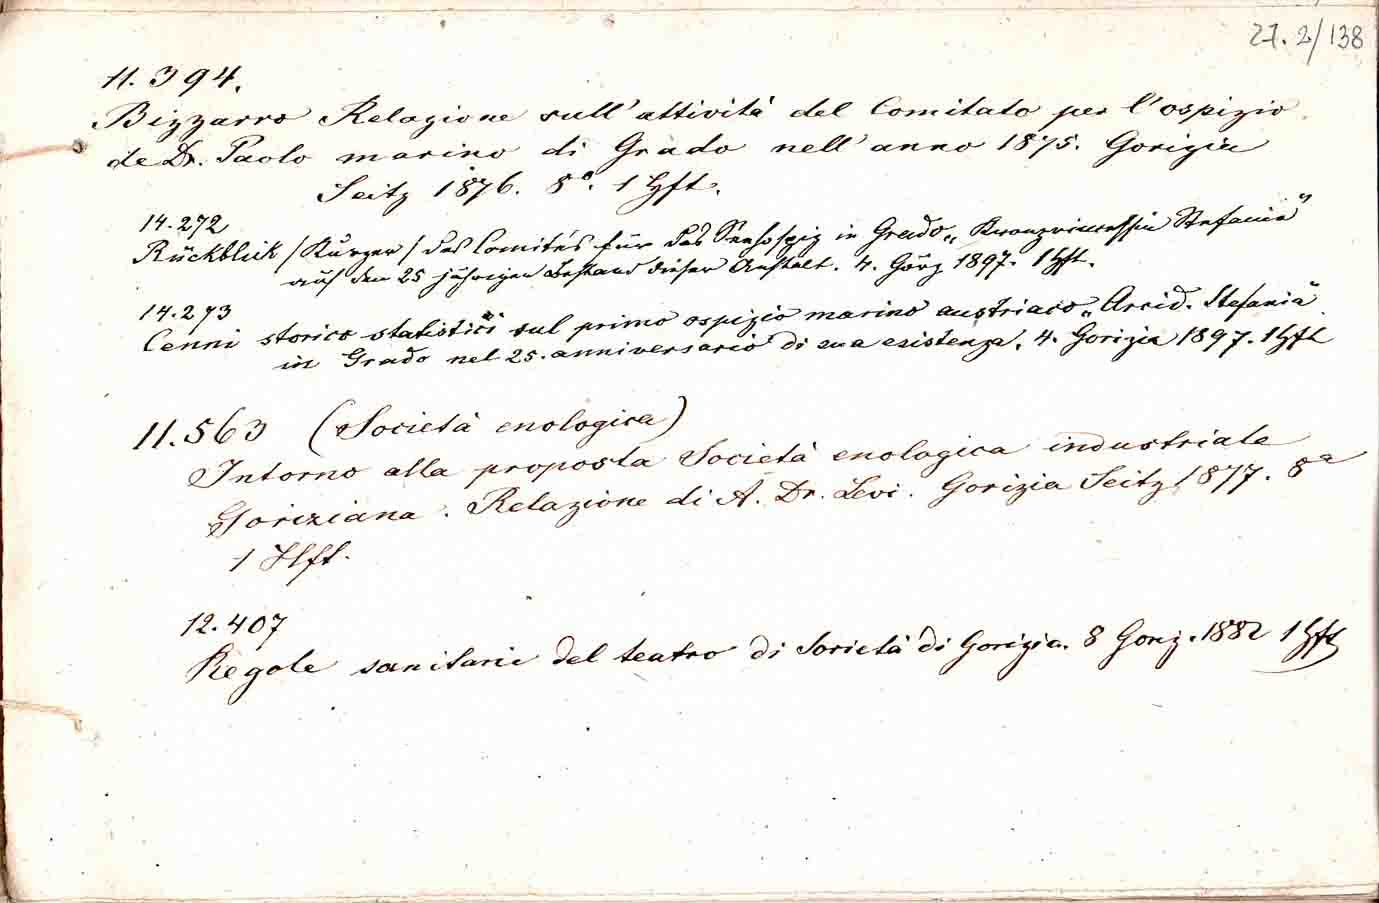 27.2/138
11.394.
Bizzarro Relazione sull'attività del Comitato per l'ospizio
de Dr. Paolo marino di Grado nell'anno 1875. Gorizia
Seitz 1876. 8°. 1 Hft.
14.272
Rückblick /Kurzer/ des Comités für das Seehospiz in Grado „Kronprinzessin Stefanie"
auf den 25 jährigen Bestand dieser Anstalt. 4. Görz 1897. 1 Hft.
14.273
Cenni storico statistici sul primo ospizio marino austriaco „Arcid. Stefania"
in Grado nel 25. anniversario di sua esistenza. 4. Gorizia 1897. 1 Hft
11.563 (Società enologica)
Intorno alla proposta Società enologica industriale
Goriziana. Relazione di A. Dr. Levi. Gorizia Seitz 1877. 8°
1 Hft.
12.407
Regole sanitarie del teatro di Società di Gorizia. 8 Goriz. 1882 1 Hft